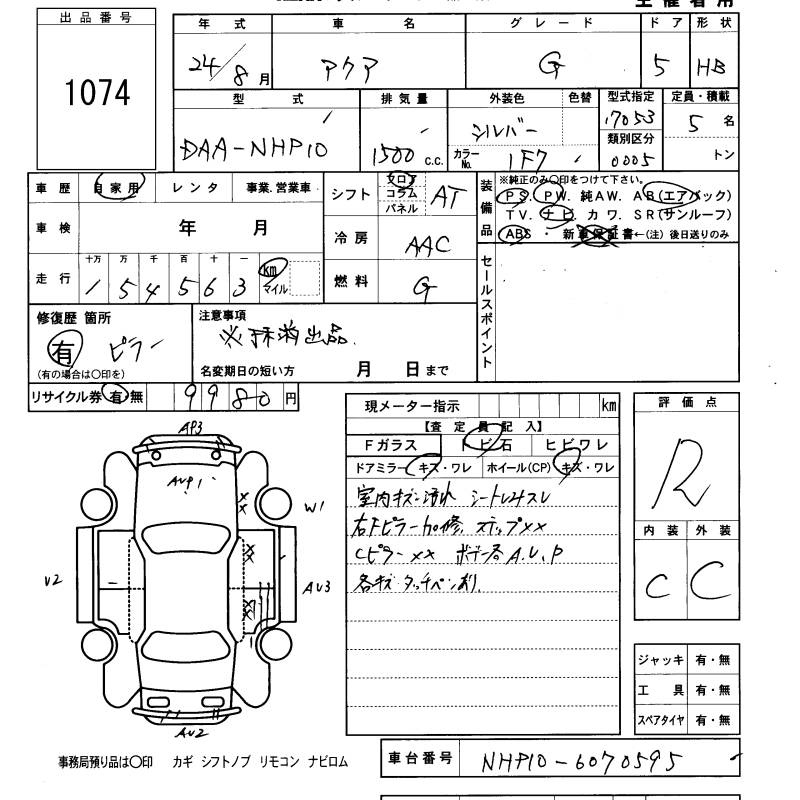 出品番号
1074
年式 車名 グレード ドア 形状
24/8月 アクア G 5 HB
型式 排気量 外装色 色替 型式指定 定員・積載
DAA-NHP10 1500 c.c. シルバー 17053 5名
カラーNo. 1F7 類別区分 0005 トン
車歴 自家用 レンタ 事業.営業車
シフト フロア コラム パネル AT
装備品 ※純正のみ〇印をつけて下さい。
PS. PW. 純AW. AB(エアバック)
TV. ナビ. カワ. SR(サンルーフ)
ABS ・ 新車保証書←(注)後日送りのみ
車検 年 月
冷房 AAC
走行 十万 万 千 百 十 一
154563 km マイル
燃料 G
セールスポイント
修復歴 箇所
有 ピラー
(有の場合は〇印を)
注意事項
※抹消出品.
名変期日の短い方 月 日まで
リサイクル券 有 無 9980 円
現メーター指示 km
【査定員記入】
Fガラス トビ石 ヒビワレ
ドアミラー キズ・ワレ ホイール(CP) キズ・ワレ
室内キズ 汚れ シートLHスレ
右Fピラー加修 ステップxx
Cピラーxx ボデー各A.U.P
各キズ タッチペン有.
評価点
R
内装 外装
C C
AP3
AUP1
W1
U2
AU3
AU2
ジャッキ 有・無
工具 有・無
スペアタイヤ 有・無
事務局預り品は〇印 カギ シフトノブ リモコン ナビロム
車台番号 NHP10-6070595